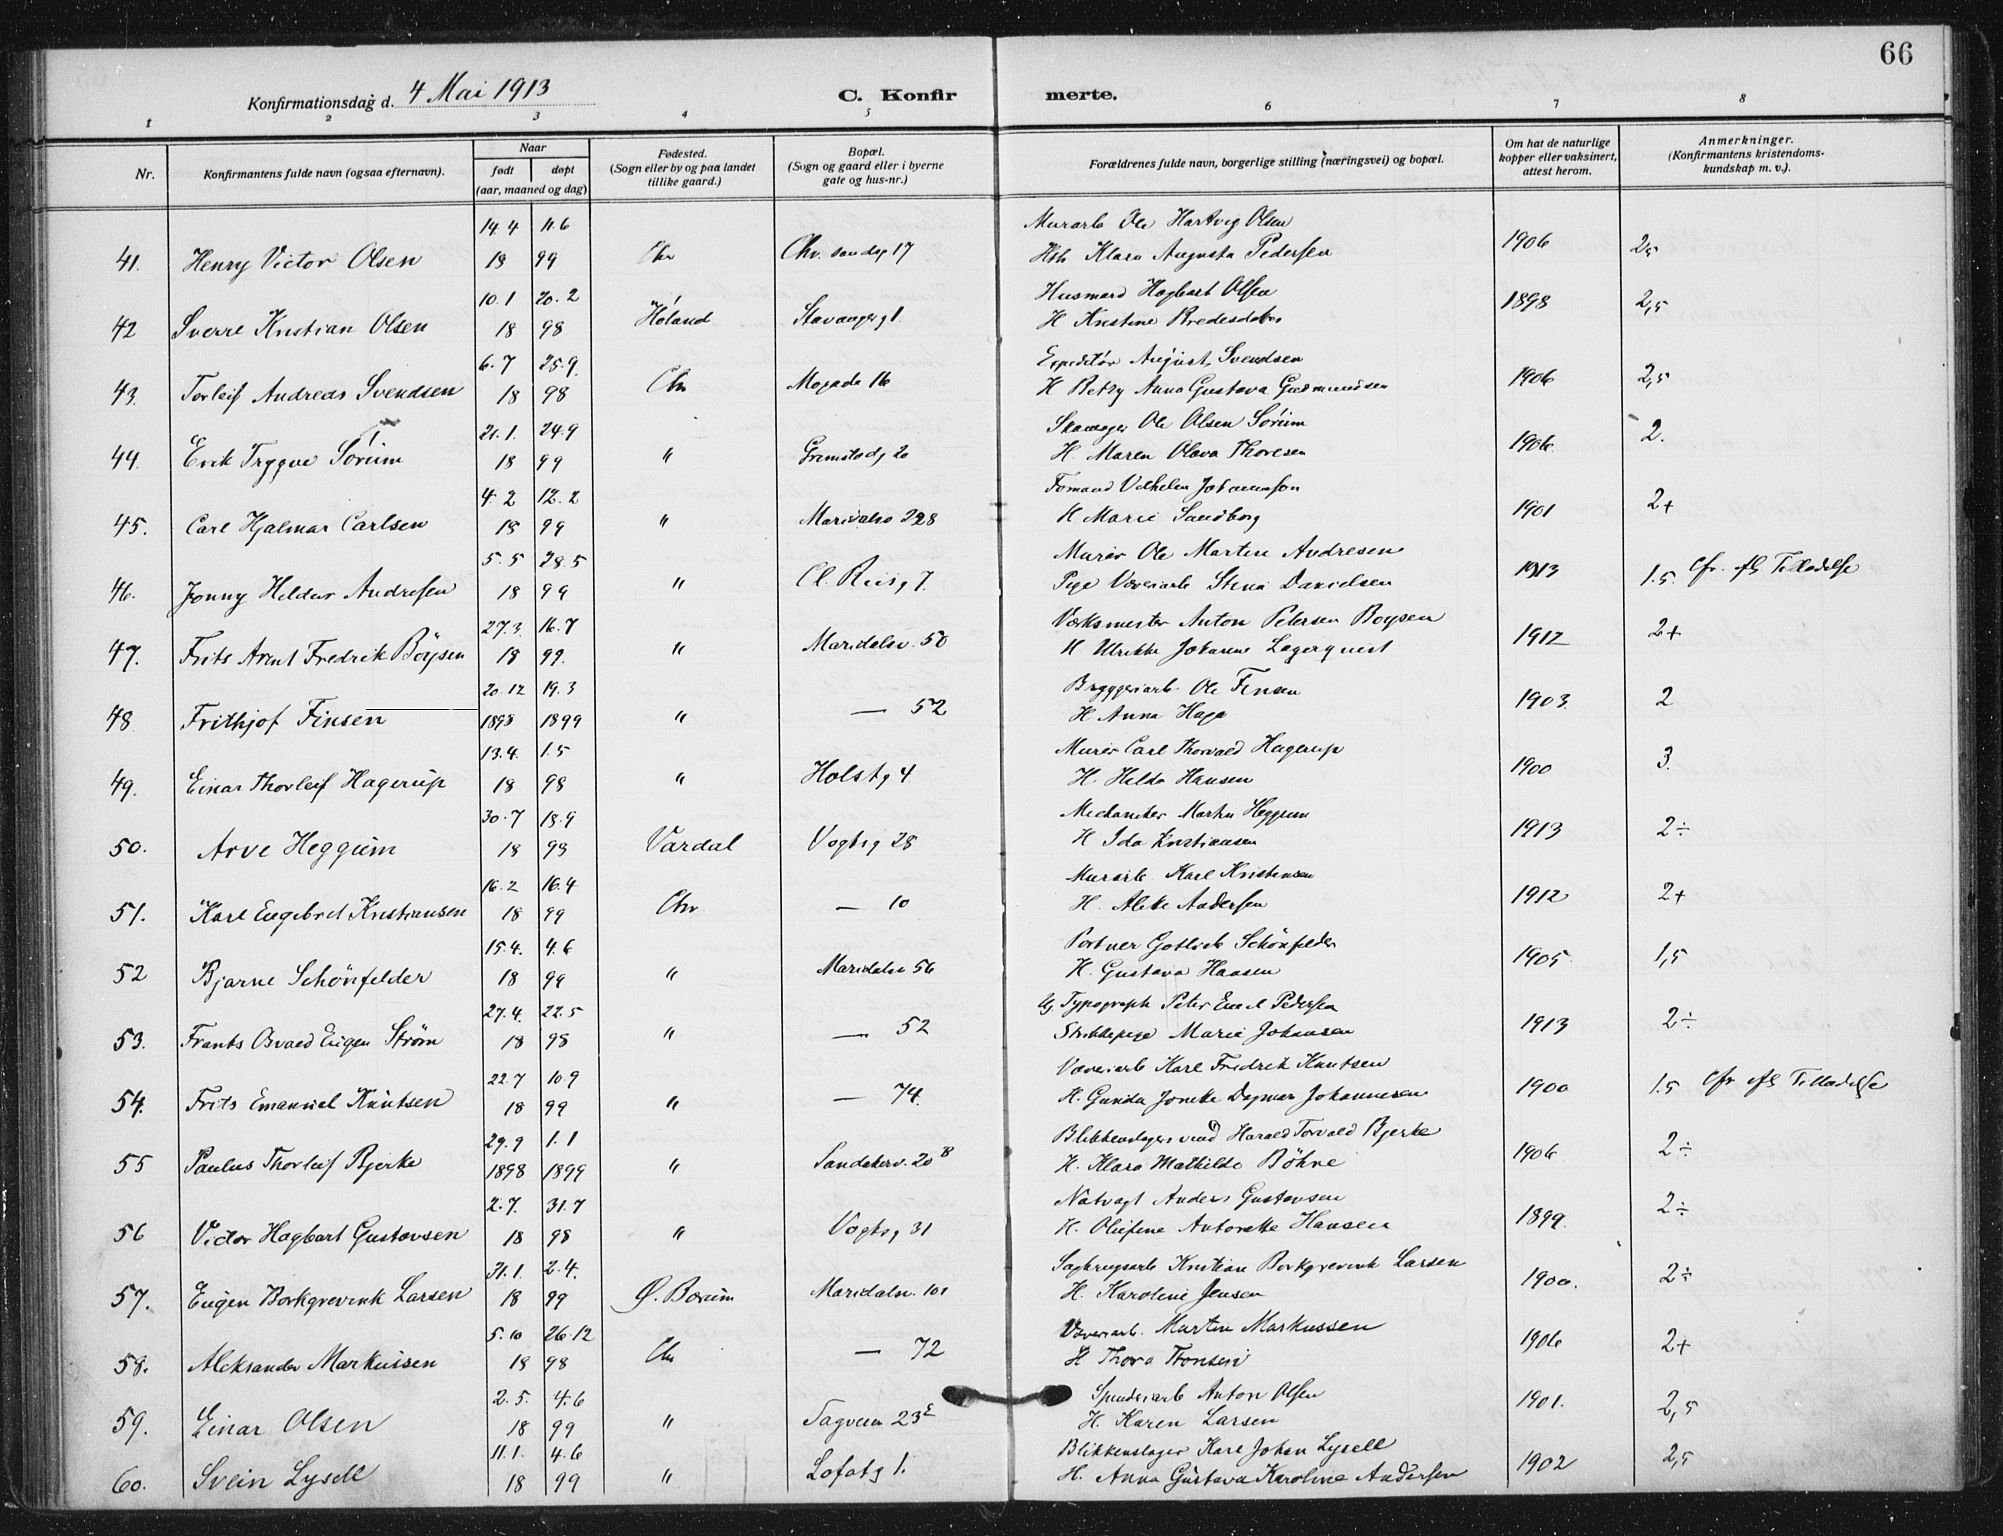 66
Konfirmationsdag d. 4 Mai 1913 C. Konfir merte.
1 2 3 4 5 6 7 8
Nr. Konfirmantens fulde navn (ogsaa efternavn). Naar født døpt (aar, maaned og dag) Fødested. (Sogn eller by og paa landet tillike gaard.) Bopæl. (Sogn og gaard eller i byerne gate og hus-nr.) Forældrenes fulde navn, borgerlige stilling (næringsvei) og bopæl. Om hat de naturlige kopper eller vaksinert, attest herom. Anmerkninger. (Konfirmantens kristendomskundskap m. v.).
14.4 11.6 Murarb Ole Hartvig Olsen
41. Henry Victor Olsen 18 99 Chr Chr. sandsg 17 Hst Klara Augusta Pedersen 1906 2,5
10.1 20.2 Husmand Hagbart Olsen
42 Sverre Kristian Olsen 18 98 Høland Stavangerg 1 H Kristine 1898 2,5
6.7 25.9. Expeditør August Svendsen
43. Torleif Andreas Svendsen 18 98 Chr Mogada 16 H Betzy Anna Gustava Gudmundsen 1906 2,5
21.1. 24.9 Ole Olsen Sörum
44. Erik Tryggve Sörum 18 99 " Grimstadg 20 H. Maren Olava Thoresen 1906 2.
4.2 12.2 Formand Vilhelm Johannson
45. Carl Hjalmar Carlsen 18 99 " 228 H Marie Sandborg 1901 2+
5.5 28.5 Murer Ole Martin Andresen
46. Jonny Andresen 18 99 " Cl. Riisg 7. Pige Væveriarb Stina Danielsen 1913 1.5. Cfr. Tilladelse
27.3. 16.7 Væksmester Anton Petersen Boysen
47. Frits Arent Fredrik Böysen 18 99. " Maridalsv. 50 H Ulrikke Johanne Lagerquist 1912 2+
20.12 19.3 Bryggeriarb. Ole Finsen
48 Frithjof Finsen 1898 1899 " — 52 H Anna Haga 1903. 2
13.4. 1.5 Murer Carl Thorvald Hagerup
49. Einar Thorleif Hagerup 18 98 " Holstg 4 H. Hilda Hansen 1900 3.
30.7 18.9 Mechaniker Martin Heggum
50. Arve Heggum 18 98 Vardal Vogtsg 28 H Ida Kristiansen 1913 2÷
16.2 16.4 Murarb Karl Kristiansen
51. Karl Engebret Kristiansen 18 99 Chr — 10 H. Andersen 1912 2+
15.4. 4.6 Portner Gotlieb Schönfelder
52 Bjarne Schönfelder 18 99 " Maridalsv 56 H. Gustava Hansen 1905 1,5
27.4. 22.5 Ug Typograph Peter Emil Pedersen
53. Frants Osvald Eugen Strøm 18 98 " — 52 Strikkepige Marie Johansen 1913 2÷
22.7 10.9 Væveriarb Karl Fredrik Knutsen
54. Frits Emanuel Knutsen 18 99 " — 74. H. Gunda Dagmar Johannesen 1900 1.5 Cfr Tilladelse
29.9 1.1 Blikkenslagersvend Harald Torvald Bjerke
55 Paulus Thorleif Bjerke 1898 1899 " Sandakerv. 20 B H. Klara Mathilde Böhne 1906 2÷
2.7. 31.7 Natvagt Anders Gustavsen
56 Victor Hagbart Gustavsen 18 98 " Vogtsg 31 H. Olufine Antonette Hansen 1899 2÷
31.1. 2.4. Sagbrugsarb Kristian Borkgrevink Larsen
57. Eugen Borkgrevink Larsen 18 99 Ø. Bærum Maridalsv. 101 H. Karoline Jensen 1900. 2÷
5.10 26.12 Væveriarb. Martin Markussen
58. Aleksander Markussen 18 98 Chr — 72 H Thora 1906 2+
2.5. 4.6 Spinderiarb Anton Olsen
59. Einar Olsen 18 99 " Sagveien 23 E H. Karen Larsen 1901. 2,5
11.1. 4.6 Blikkenslager Karl Johan Lysell
60. Svein Lysell 18 99 " Lofotg 1. H. Anna Gustava Karoline Andersen 1902 2,5